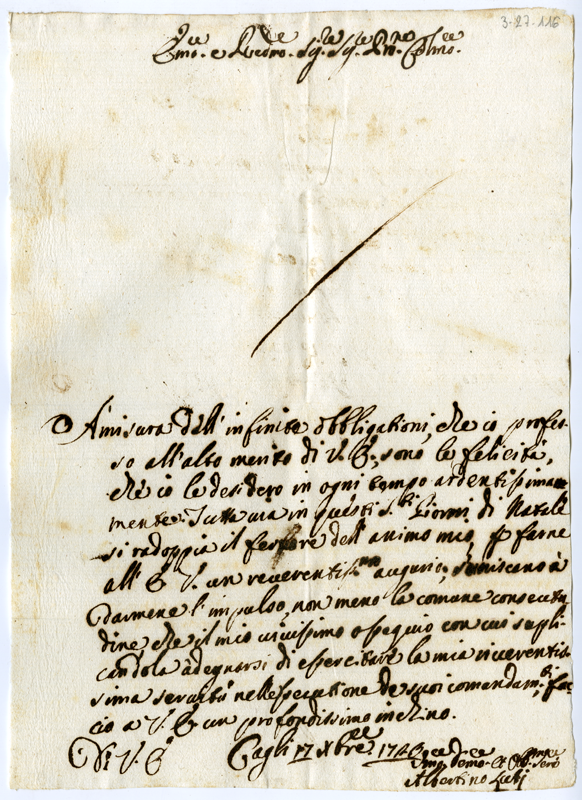 3-27-116
Emo. e Rvdmo. Sig.re Sig.re Pne Colmo.
A misura dell'infinite obbligationi, che io profes-
so all'alto merito di V. E., sono le felicità,
che io le desidero in ogni tempo ardentissima
mente. Tutta via in questi S.ti Giorni di Natale
si radoppia il fervore dell'animo mio, p farne
all'E V. un reverentis.mo augurio,
darmene l'impulso, non meno la comune consuetu
dine, che il mio vivissimo ossequio con cui supli-
candola à degnarsi di essercitare la mia riverentis-
sima servitù nell'essecutione de suoi comandam.ti, fac
cio a V. E un profondissimo inchino.
Di V. E
Cagli 17 Xbre 1743
Albertino